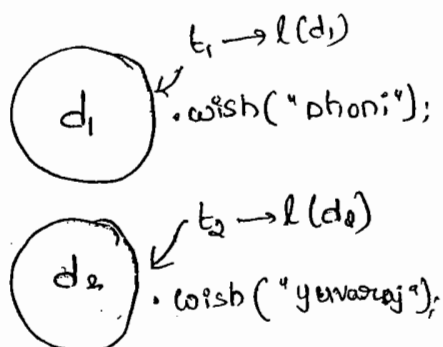 t₁ → l(d₁)
d₁ .wish("Dhoni");
t₂ → l(d₂)
d₂ .wish("yuvaraj");